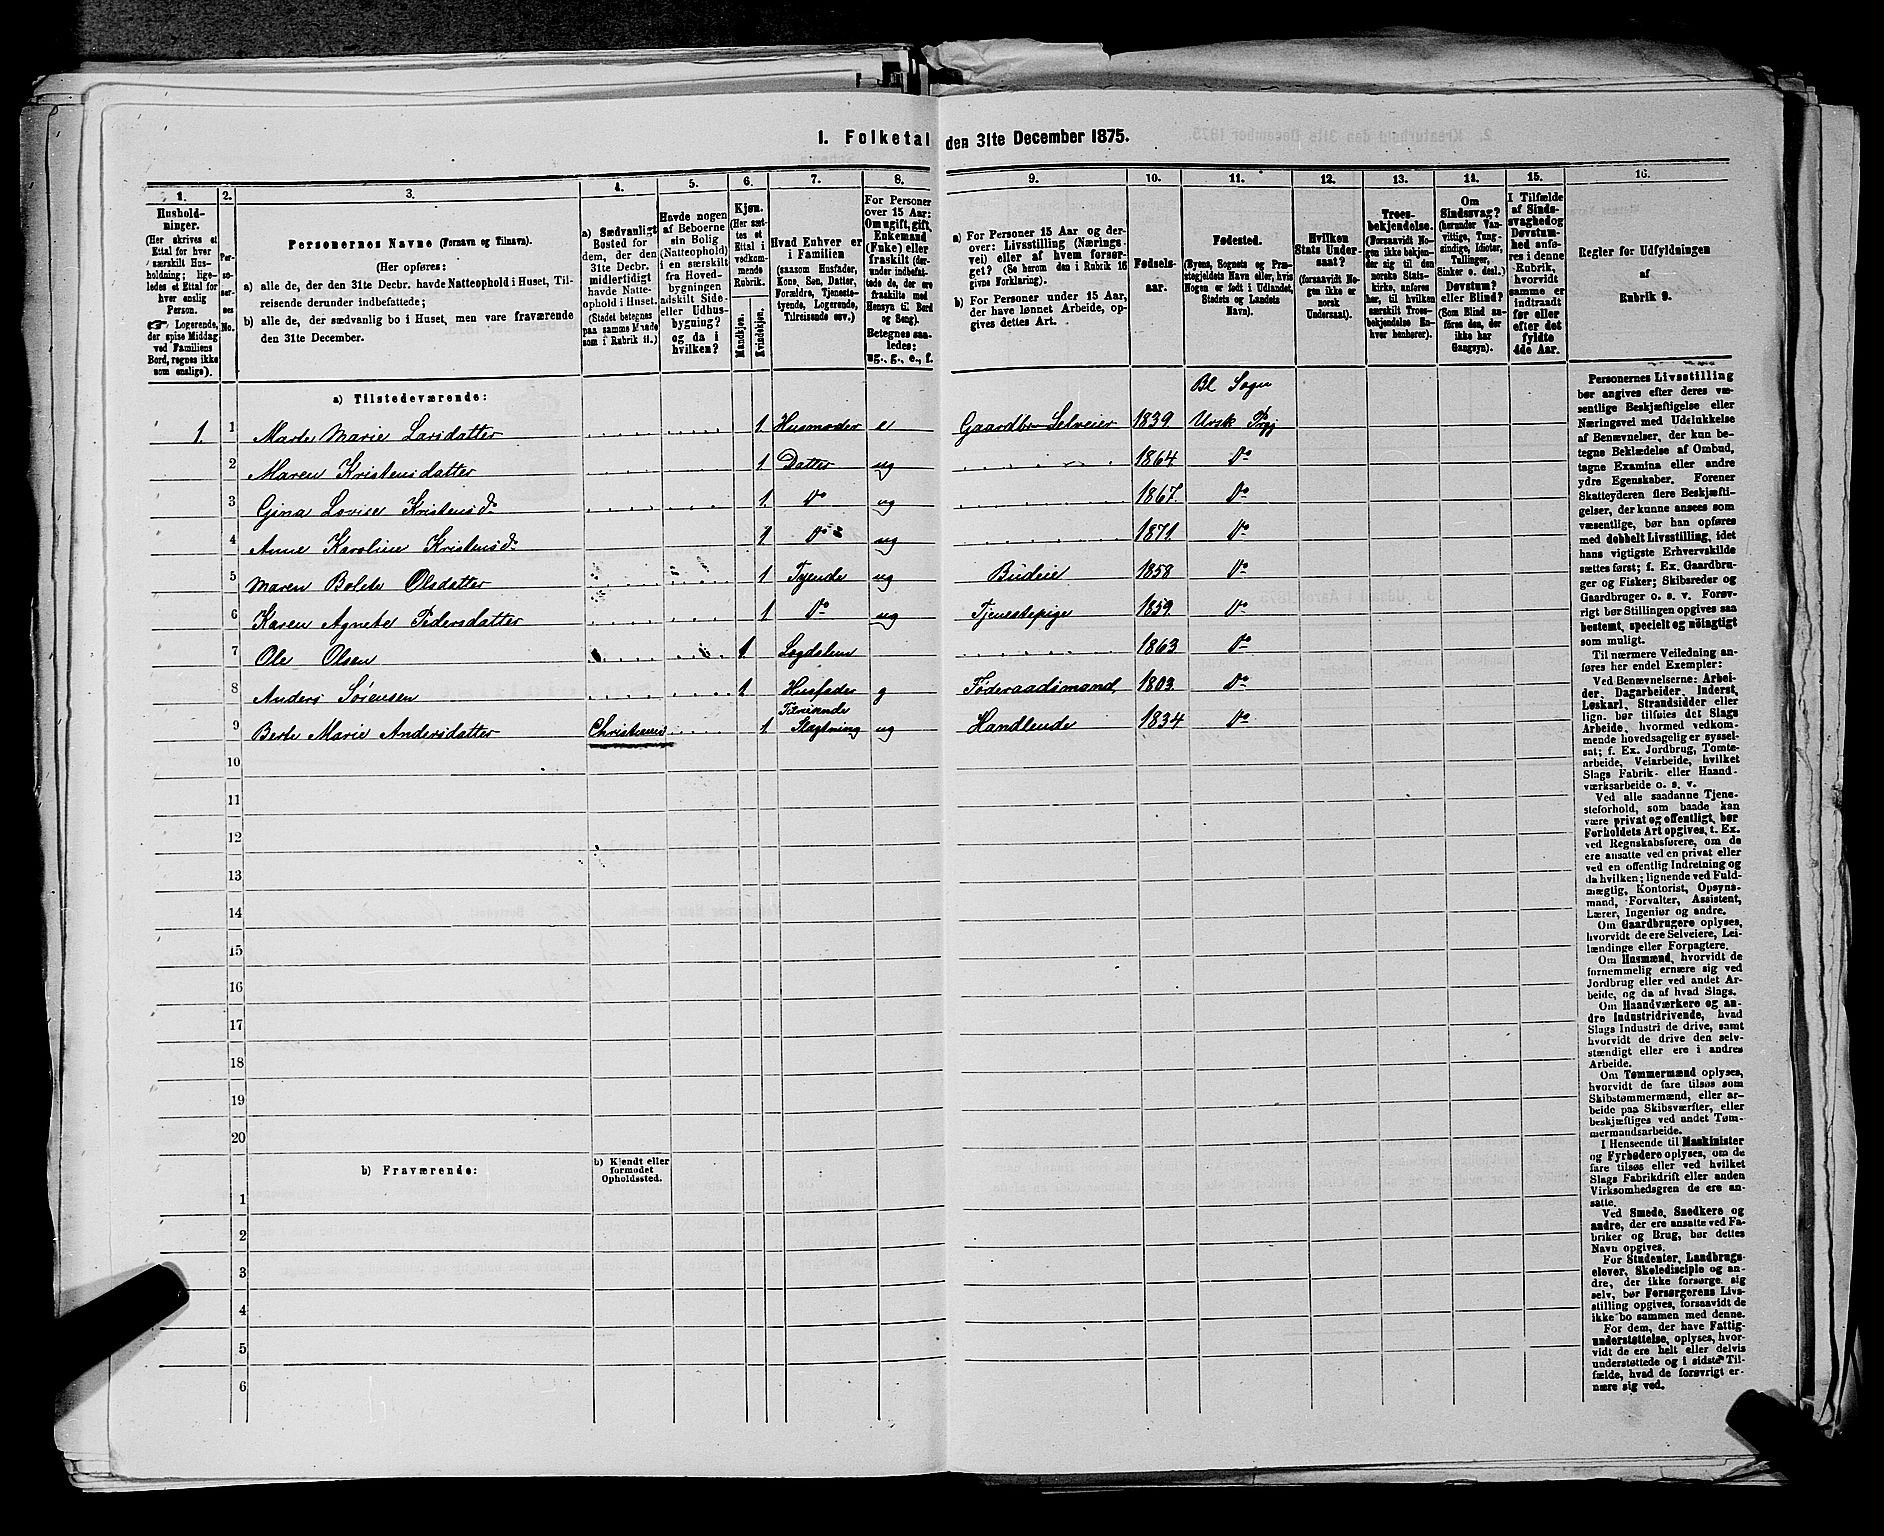 1. Folketal den 31te December 1875.
1. 2. 3. 4. 5. 6. 7. 8. 9. 10. 11. 12. 13. 14. 15. 16.
Hushold-
ninger.
(Her skrives et
Ettal for hver
særskilt Hus-
holdning; lige-
ledes et Ettal for
hver enslig
Person.
☞ Logerende,
der spise Middag
ved Familiens
Bord, regnes ikke
som enslige).
Per-
so-
ner-
nes
No.
Personernes Navne (Fornavn og Tilnavn).
(Her opføres:
a) alle de, der den 31te Decbr. havde Natteophold i Huset, Til-
reisende derunder indbefattede;
b) alle de, der sædvanlig bo i Huset, men vare fraværende
den 31te December.
a) Sædvanligt
Bosted for
dem, der den
31te Decbr.
midlertidigt
havde Natte-
ophold i Huset.
(Stedet betegnes
paa samme Maade
som i Rubrik 11.)
Havde nogen
af Beboerne
sin Bolig
(Natteophold)
i en særskilt
fra Hoved-
bygningen
adskilt Side-
eller Udhus-
bygning?
og da i
hvilken?
Kjøn.
(Her sæt-
tes et
Ettal i
vedkom-
mende
Rubrik.
Mandkjøn.
Kvindekjøn.
Hvad Enhver er
i Familien
(saasom Husfader,
Kone, Søn, Datter,
Forældre, Tjeneste-
tyende, Logerende,
Tilreisende osv.)
For Personer
over 15 Aar:
Om ugift, gift,
Enkemand
(Enke) eller
fraskilt (der-
under indbefat-
tede de, der ere
fraskilte med
Hensyn til Bord
og Seng).
Betegnes saa-
ledes:
ug., g., e., f.
a) For Personer 15 Aar og der-
over: Livsstilling (Nærings-
vei) eller af hvem forsør-
get? (Se herom den i Rubrik 16
givne Forklaring).
b) For Personer under 15 Aar,
der have lønnet Arbeide, op-
gives dettes Art.
Fødsels-
aar.
Fødested.
(Byens, Sognets og Præ-
stegjeldets Navn eller, hvis
Nogen er født i Udlandet,
Stedets og Landets
Navn).
Hvilken
Stats Under-
saat?
(forsaavidt No-
gen ikke er
norsk
Undersaat).
Troes-
bekjendelse.
(Forsaavidt No-
gen ikke bekjen-
der sig til den
norske Stats-
kirke, anføres
her, til hvilken
særskilt Troes-
bekjendelse En-
hver henhører).
Om
Sindssvag?
(herunder Van-
vittige, Tung-
sindige, Idioter,
Tullinger,
Sinker o. desl.)
Døvstum?
eller Blind?
(Som Blind an-
føres den, der
ikke har
Gangsyn).
I Tilfælde
af Sinds-
svaghed og
Døvstum-
hed anfø-
res i denne
Rubrik,
hvorvidt
samme er
indtraadt
før eller
efter det
fyldte
4de Aar.
Regler for Udfyldningen
af
Rubrik 9.
a) Tilstedeværende: Bl Sogn
1. 1 Marte Marie Larsdatter 1 Husmoder e Gaardbr Selveier 1839 Ursk Prgj
2 Maren Kristensdatter 1 Datter ug 1864. Do
3 Gina Lovise Kristensd. 1. Do ug 1867. Do
4 Anne Karoline Kristensd. 1 Do ug 1871. Do
5 Maren Bolete Olsdatter 1 Tyende ug Budeie 1858 Do
6 Karen Agnete Pedersdatter 1 Do ug Tjenestepige 1859. Do
7 Ole Olsen 1. Lægdslem 1863 Do
8 Anders Sørensen 1 Husfader g Føderaadsmand 1803. Do
9 Berte Marie Andersdatter Christiania 1 Tilreisende Slægtning ug Handlende 1834 Do
10
11
12
13
14
15
16
17
18
19
20
b) Fraværende:
b) Kjendt eller
formodet
Opholdssted.
1
2
3
4
5
6
Personernes Livsstilling
bør angives efter deres væ-
sentlige Beskjæftigelse eller
Næringsvei med Udelukkelse
af Benævnelser, der kun be-
tegne Beklædelse af Ombud,
tagne Examina eller andre
ydre Egenskaber. Forener
Skatteyderen flere Beskjæfti-
gelser, der kunne ansees som
væsentlige, bør han opføres
med dobbelt Livsstilling, idet
hans vigtigste Erhvervskilde
sættes først; f. Ex. Gaardbru-
ger og Fisker; Skibsreder og
Gaardbruger o. s. v. Forøv-
rigt bør Stillingen opgives saa
bestemt, specielt og nøiagtigt
som muligt.
Til nærmere Veiledning an-
føres her endel Exempler:
Ved Benævnelserne: Arbei-
der, Dagarbeider, Inderst,
Løskarl, Strandsidder eller
lign. bør tilføies det Slags
Arbeide, hvormed vedkom-
mende hovedsagelig er syssel-
sat; f. Ex. Jordbrug, Tomte-
arbeide, Veiarbeide, hvilket
Slags Fabrik- eller Haand-
værksarbeide o. s. v.
Ved alle saadanne Tjene-
steforhold, som baade kan
være privat og offentligt, bør
Forholdets Art opgives, t. Ex.
ved Regnskabsførere, om de
ere ansatte ved en privat eller
ved en offentlig Indretning og
da hvilken; lignende ved Fuld-
mægtig, Kontorist, Opsyns-
mand, Forvalter, Assistent,
Lærer, Ingeniør og andre.
Om Gaardbrugere oplyses,
hvorvidt de ere Selveiere, Lei-
lændinge eller Forpagtere.
Om Husmænd, hvorvidt de
fornemmelig ernære sig ved
Jordbrug eller ved andet Ar-
beide, og da af hvad Slags.
Om Haandværkere og an-
dre Industridrivende, hvad
Slags Industri de drive, samt
hvorvidt de drive den selv-
stændigt eller ere i andres
Arbeide.
Om Tømmermænd oplyses,
hvorvidt de fare tilsøs som
Skibstømmermænd, eller ar-
beide paa Skibsværfter, eller
beskjæftiges ved andet Tøm-
mermandsarbeide.
I Henseende til Maskinister
og Fyrbødere oplyses, om de
fare tilsøs eller ved hvilket
Slags Fabrikdrift eller anden
Virksomhedsgren de ere an-
satte.
Ved Smede, Snedkere og
andre, der ere ansatte ved Fa-
briker og Brug, bør dettes
Navn opgives.
For Studenter, Landbrugs-
elever, Skoledisciple og an-
dre, der ikke forsørge sig
selv, bør Forsørgerens Livs-
stilling opgives, forsaavidt de
ikke bo sammen med denne.
For dem, der have Fattig-
understøttelse, oplyses, hvor-
vidt de ere helt eller delvis
understøttede og i sidste Til-
fælde, hvad de forøvrigt er-
nære sig ved.